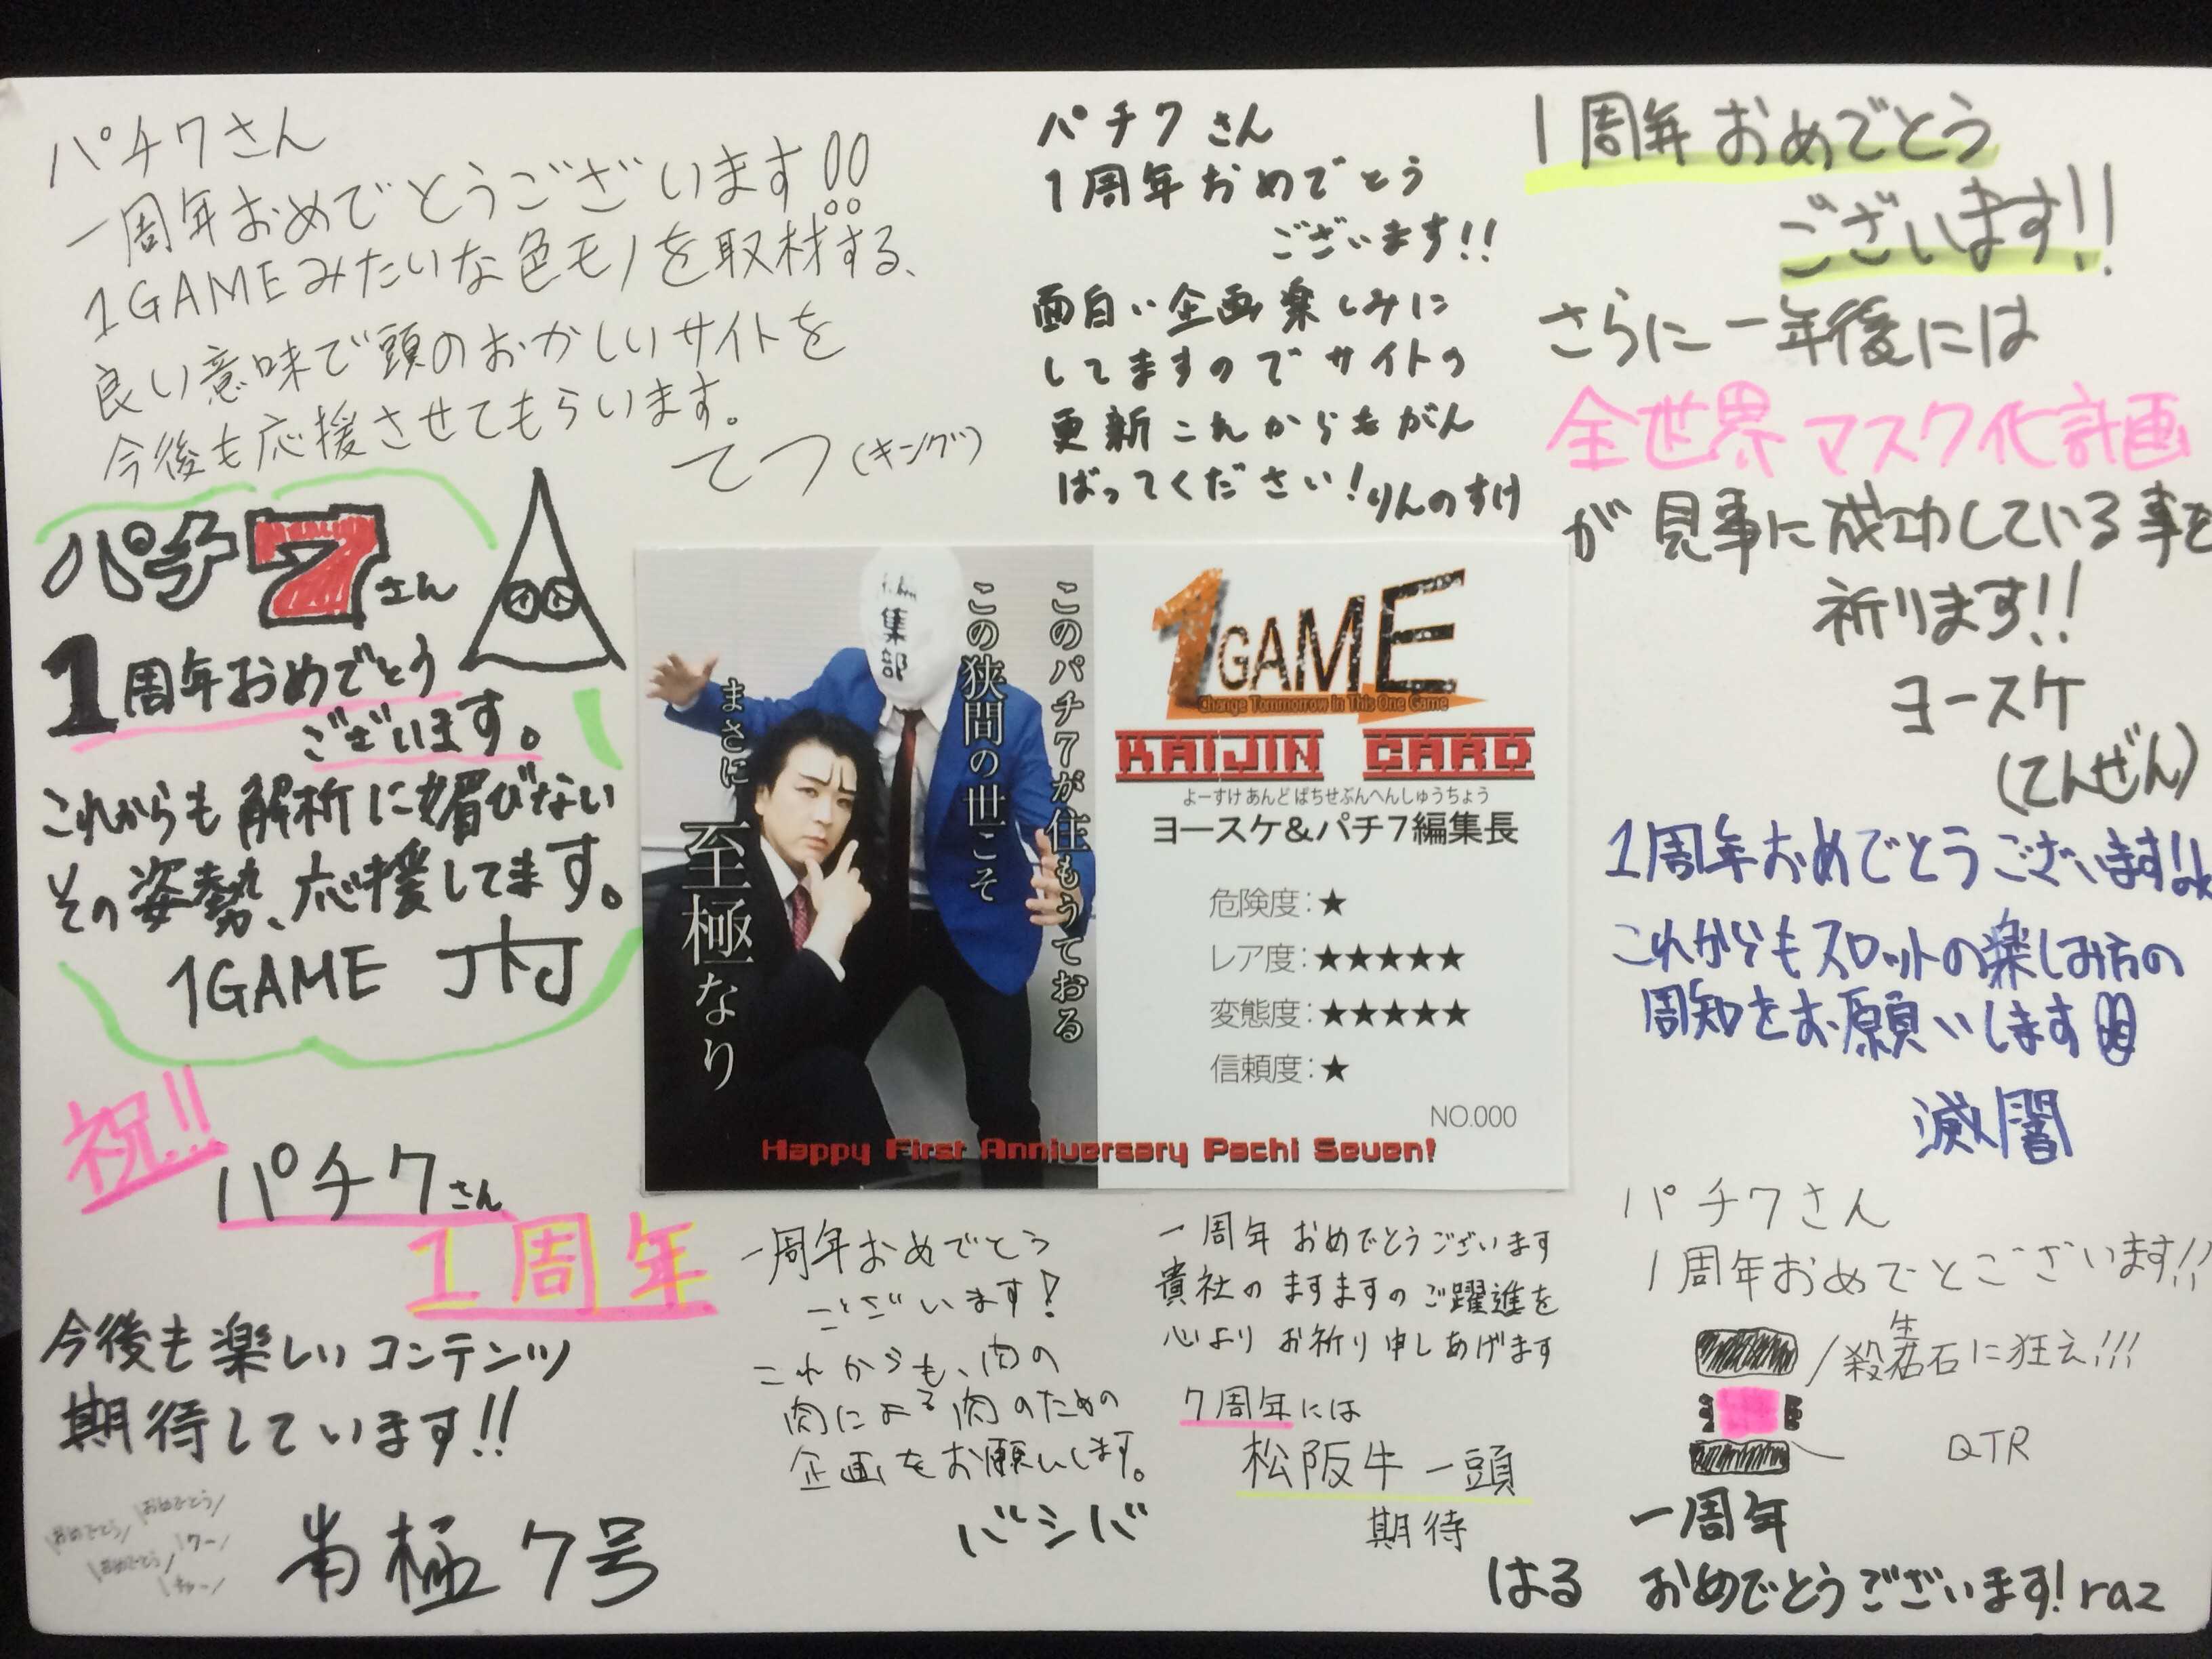 パチ7さん
一周年おめでとうございます!!
1GAMEみたいな色モノを取材する、
良い意味で頭のおかしいサイトを
今後も応援させてもらいます。
てつ(キング)
パチ7さん
1周年おめでとう
ございます!!
面白い企画楽しみに
してますのでサイトの
更新これからもがん
ばってください!
りんのすけ
1周年おめでとう
ございます!!
さらに一年後には
全世界マスク化計画
が見事に成功している事を
祈ります!!
ヨースケ
(てんぜん)
パチ7さん
1周年おめでとう
ございます。
これからも解析に媚びない
その姿勢、応援してます。
1GAME
このパチ7が住もうておる
この狭間の世こそ
まさに至極なり
集部
1GAME
Change Tommorrow In This One Game
KAIJIN CARD
よーすけあんどぱちせぶんへんしゅうちょう
ヨースケ&パチ7編集長
危険度:★
レア度:★★★★★
変態度:★★★★★
信頼度:★
NO.000
Happy First Anniversary Pachi Seven!
1周年おめでとうございます!!
これからもスロットの楽しみ方の
周知をお願いします!!
滅闇
祝!!
パチ7さん
1周年
今後も楽しいコンテンツ
期待しています!!
おめでとう
おめでとう
おめでとう
ワー
極7号
一周年おめでとう
ございます!
これからも、肉の
肉による肉のための
企画をお願いします。
バシバ
一周年おめでとうございます
貴社のますますのご躍進を
心よりお祈り申しあげます
7周年には
松阪牛一頭
期待
はる
パチ7さん
1周年おめでとございます!!
殺生石に狂え!!!
QTR
一周年
おめでとうございます! raz